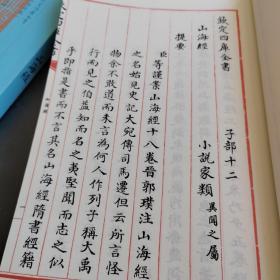 欽定四庫全書 子部十二
山海經 小說家類 異聞之屬
提要
臣等謹案山海經十八卷晉郭璞注山海經
之名始見史記大宛傳司馬遷但云所言怪
物余不敢道而未言為何人作列子稱大禹
行而見之伯益知而名之夷堅聞而志之似
乎即指是書而不言其名山海經隋書經籍